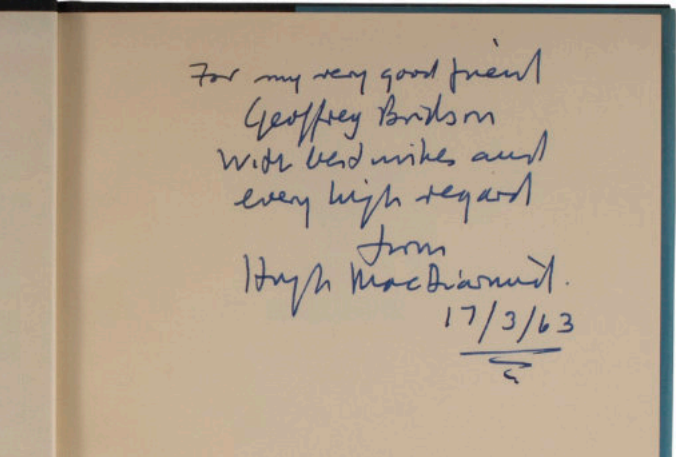 For my very good friend
Geoffrey Bridson
with best wishes and
every high regard
from
Hugh MacDiarmid.
17/3/63